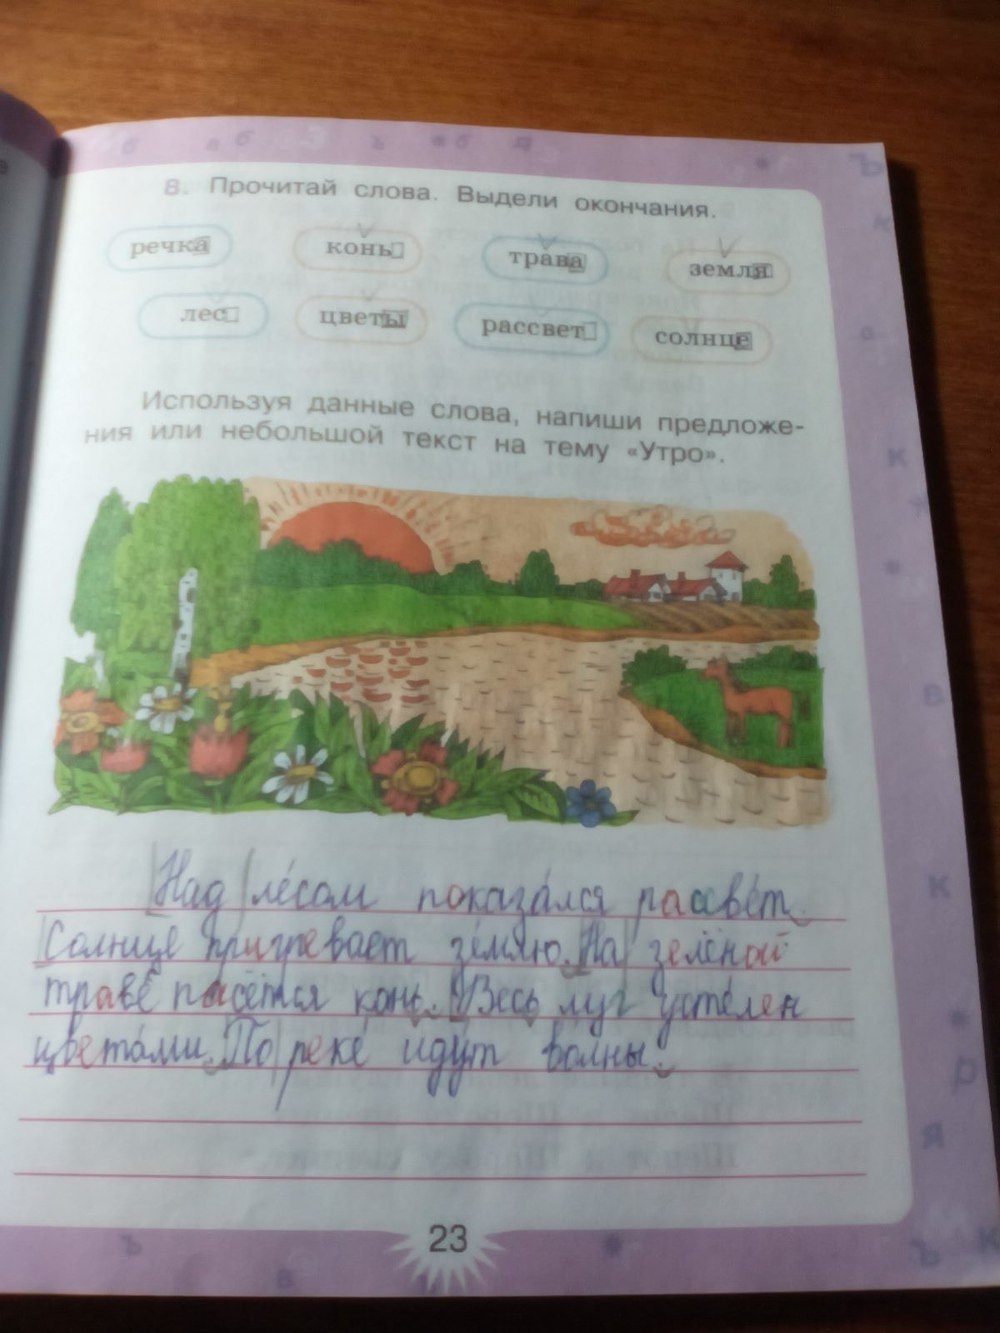 8. Прочитай слова. Выдели окончания.
речка конь трава земля
лес цветы рассвет солнце
Используя данные слова, напиши предложе-
ния или небольшой текст на тему «Утро».
Над лесом показался рассвет.
Солнце пригревает землю. На зелёной
траве пасётся конь. Весь луг устелен
цветами. По реке идут волны.
23